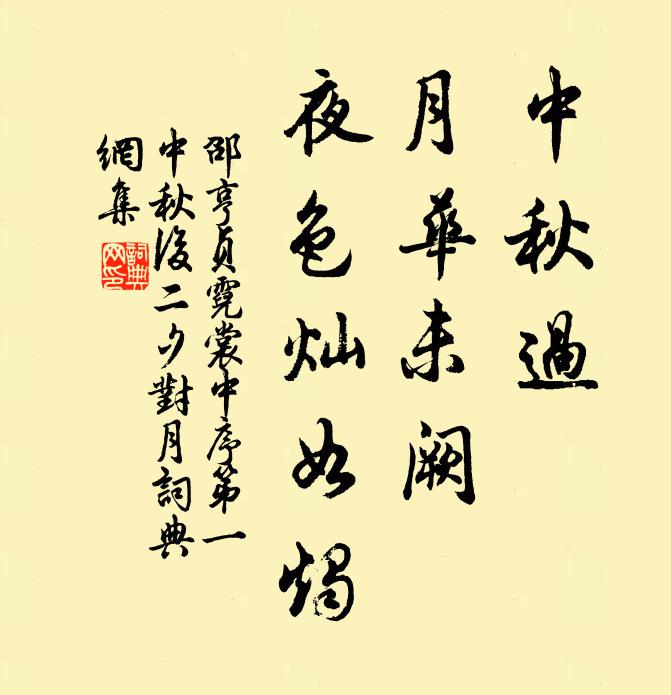 中秋過
月華未闕
夜色灿如燭
邵亨貞霓裳中序第一
中秋後二夕對月詞典
網集
詞典
网印